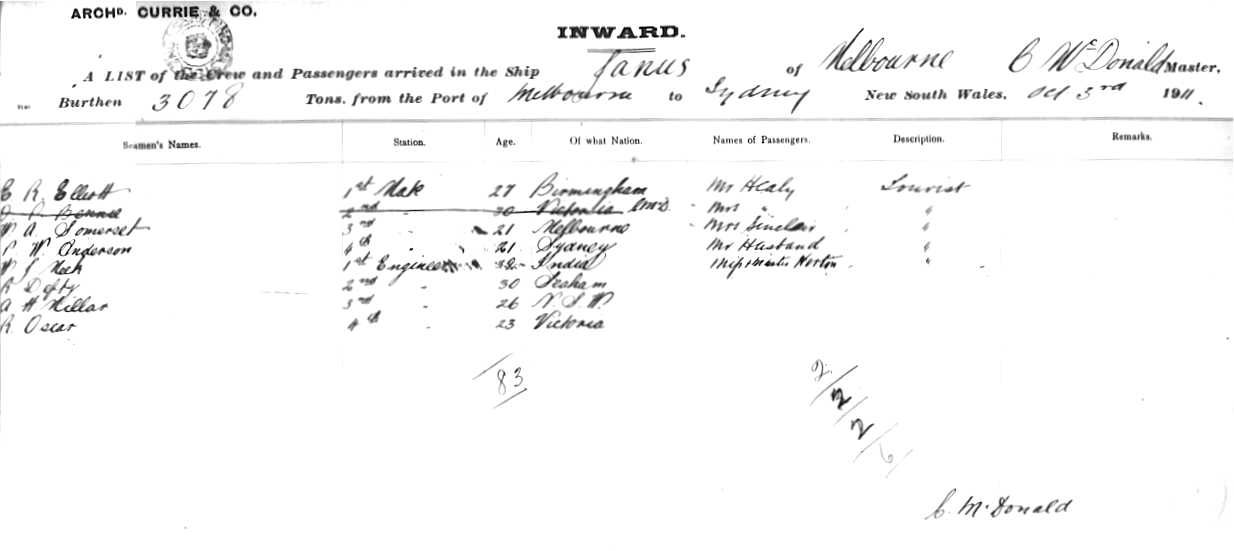 ARCHD. CURRIE & CO.
INWARD.
A LIST of the Crew and Passengers arrived in the Ship Janus of Melbourne C McDonald Master,
Burthen 3078 Tons. from the Port of Melbourne to Sydney New South Wales, Oct 3rd 1911.
Seamen's Names. Station. Age. Of what Nation. Names of Passengers. Description. Remarks.
E R Elliott 1st Mate 27 Birmingham Mr Healy Tourist
2nd 30 Victoria Mrs " "
W A Somerset 3rd " 21 Melbourne Mrs Sinclair "
P W Anderson 4th 21 Sydney Mr Husband "
W J 1st Engineer 32 India Horton "
R Defty 2nd " 30 Seaham
A H Millar 3rd " 26 N.S.W.
R Oscar 4th " 23 Victoria
83
2/2/2/6
C. McDonald